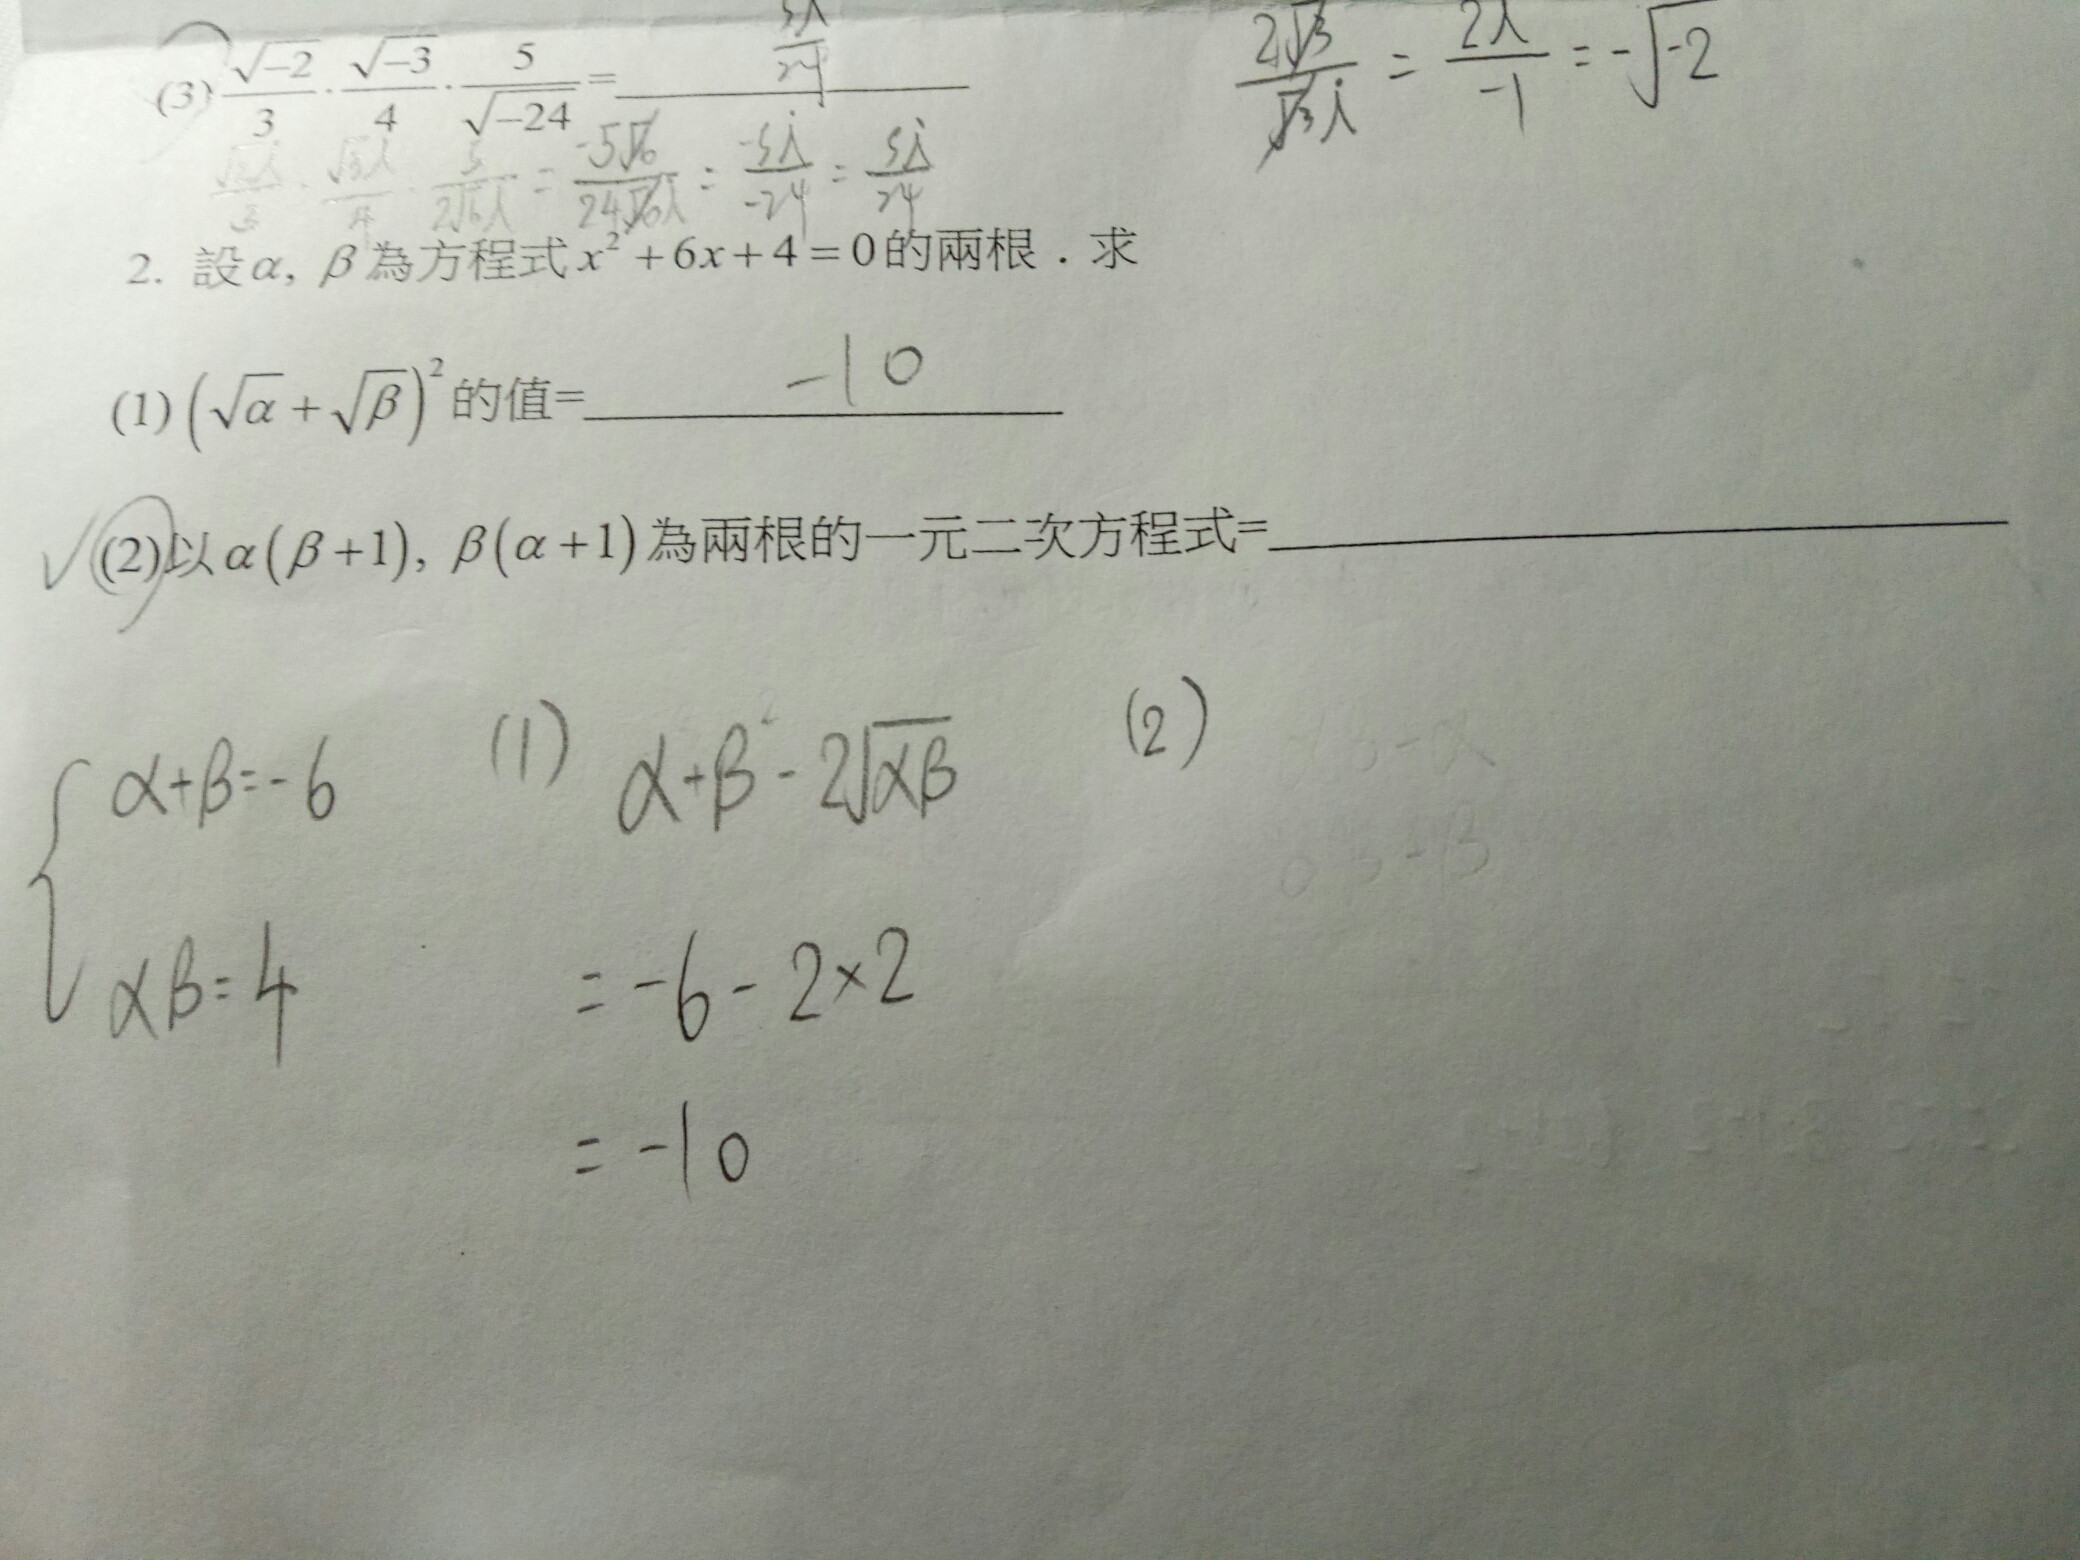 (3) √-2/3 · √-3/4 · 5/√-24 = 5i/24
2√3/√3i = 2i/-1 = -√-2
√2i/3 · √3i/4 · 5/2√6i = -5√6/24√6i = -5i/-24 = 5i/24
2. 設α, β為方程式x²+6x+4=0的兩根．求
(1) (√α+√β)²的值= -10
(2)以α(β+1), β(α+1)為兩根的一元二次方程式=
α+β=-6
(1) α+β-2√αβ
(2)
αβ=4
= -6-2×2
= -10